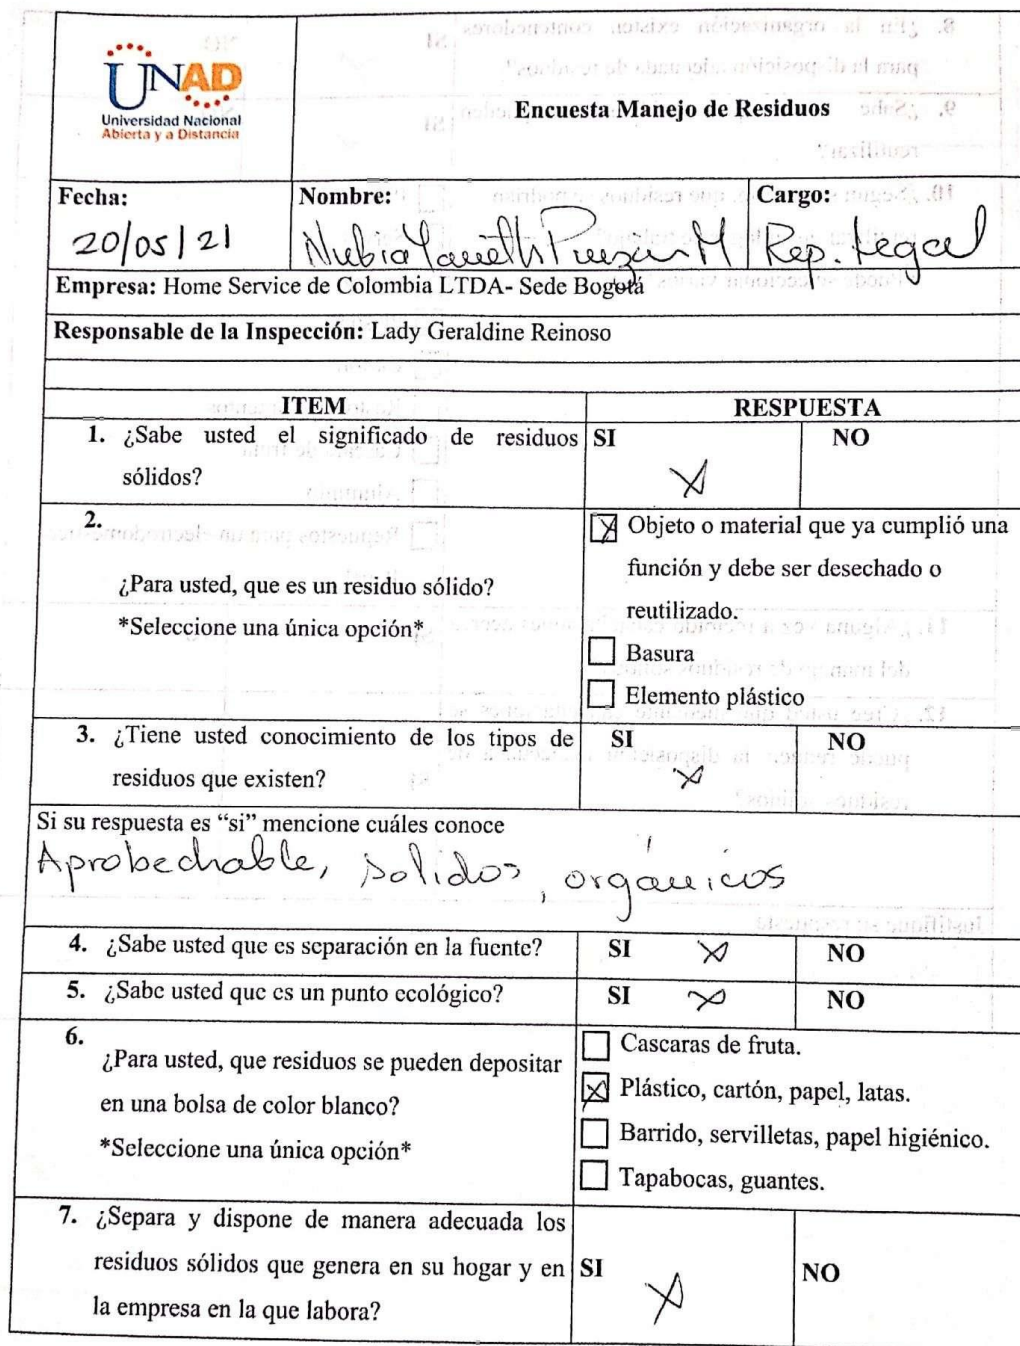 UNAD
Universidad Nacional
Abierta y a Distancia
Encuesta Manejo de Residuos
Fecha:
20/05/21
Nombre:
Nubia Yaneth M
Cargo:
Rep. Legal
Empresa: Home Service de Colombia LTDA- Sede Bogotá
Responsable de la Inspección: Lady Geraldine Reinoso
ITEM
RESPUESTA
1. ¿Sabe usted el significado de residuos
sólidos?
SI
X
NO
2.
¿Para usted, que es un residuo sólido?
*Seleccione una única opción*
X Objeto o material que ya cumplió una
función y debe ser desechado o
reutilizado.
Basura
Elemento plástico
3. ¿Tiene usted conocimiento de los tipos de
residuos que existen?
SI
X
NO
Si su respuesta es “si” mencione cuáles conoce
Aprobechable, solidos, orgánicos
4. ¿Sabe usted que es separación en la fuente?
SI X
NO
5. ¿Sabe usted que es un punto ecológico?
SI X
NO
6.
¿Para usted, que residuos se pueden depositar
en una bolsa de color blanco?
*Seleccione una única opción*
Cascaras de fruta.
X Plástico, cartón, papel, latas.
Barrido, servilletas, papel higiénico.
Tapabocas, guantes.
7. ¿Separa y dispone de manera adecuada los
residuos sólidos que genera en su hogar y en
la empresa en la que labora?
SI
X
NO